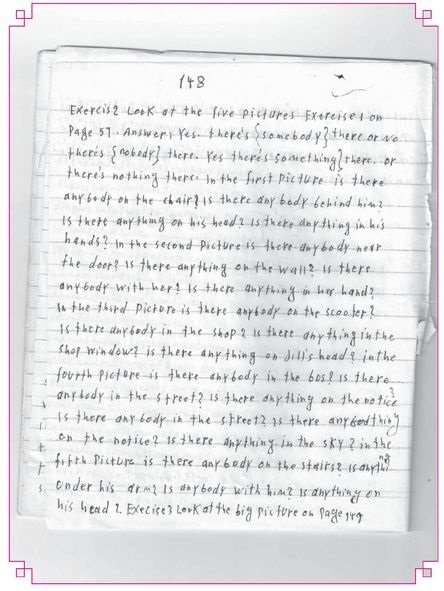 148
Exercise2 Look at the five pictures Exercise 1 on
Page 57. Answer; Yes. there's {somebody} there or No
there's {nobody} there. Yes there's something} there. or
there's nothing there. In the first picture is there
anybody on the chair? Is there any body behind him?
Is there anything on his head? Is there anything in his
hands? In the second picture is there anybody near
the door? Is there anything on the wall? Is there
anybody with her? Is there anything in her hand?
In the third picture is there anybody on the scooter?
Is there anybody in the shop? is there any thing in the
shop window? is there any thing on Jill's head? in the
fourth picture is there any body in the bus? Is there
anybody in the street? Is there anything on the notice?
Is there any body in the street? Is there anybodthing
on the notice? Is there anything in the sky? in the
fifth picture is there any body on the stairs? Is anything
under his arm? Is anybody with him? Is anything on
his head? Exercise3 Look at the big picture on Page 149